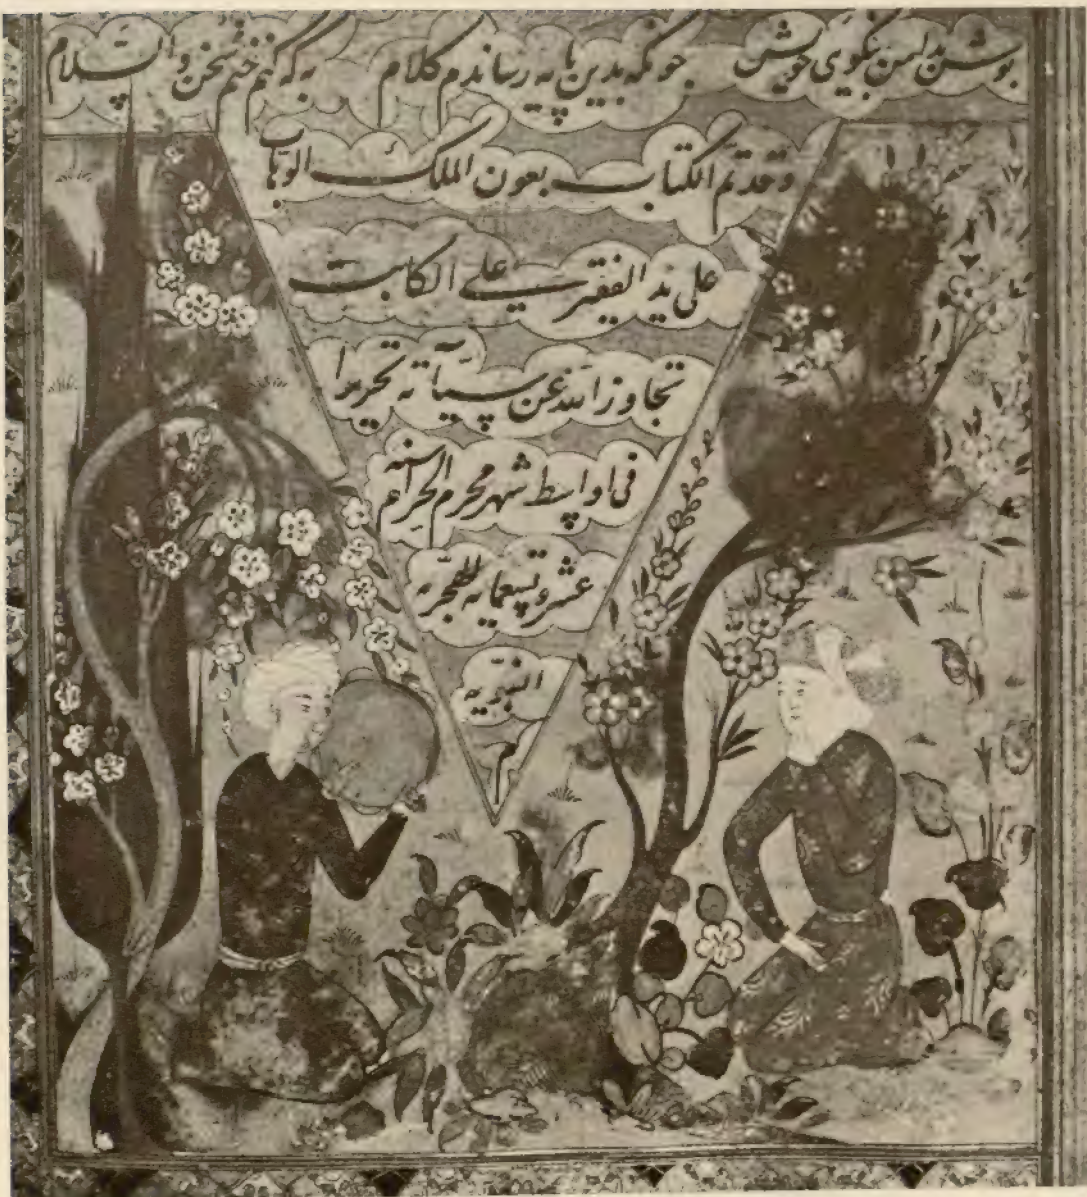 پوشش بدامن نکوی خویش چونکه بدین پایه رساندم کلام به که کنم ختم سخن والسلام
وقد تم الکتاب بعون الملک الوهاب
علی ید الفقیر علی الکاتب
تجاوز الله عن سیآته تحریرا
فی اواسط شهر محرم الحرام
عشر و تسعمایه الهجریه
النبویه
م